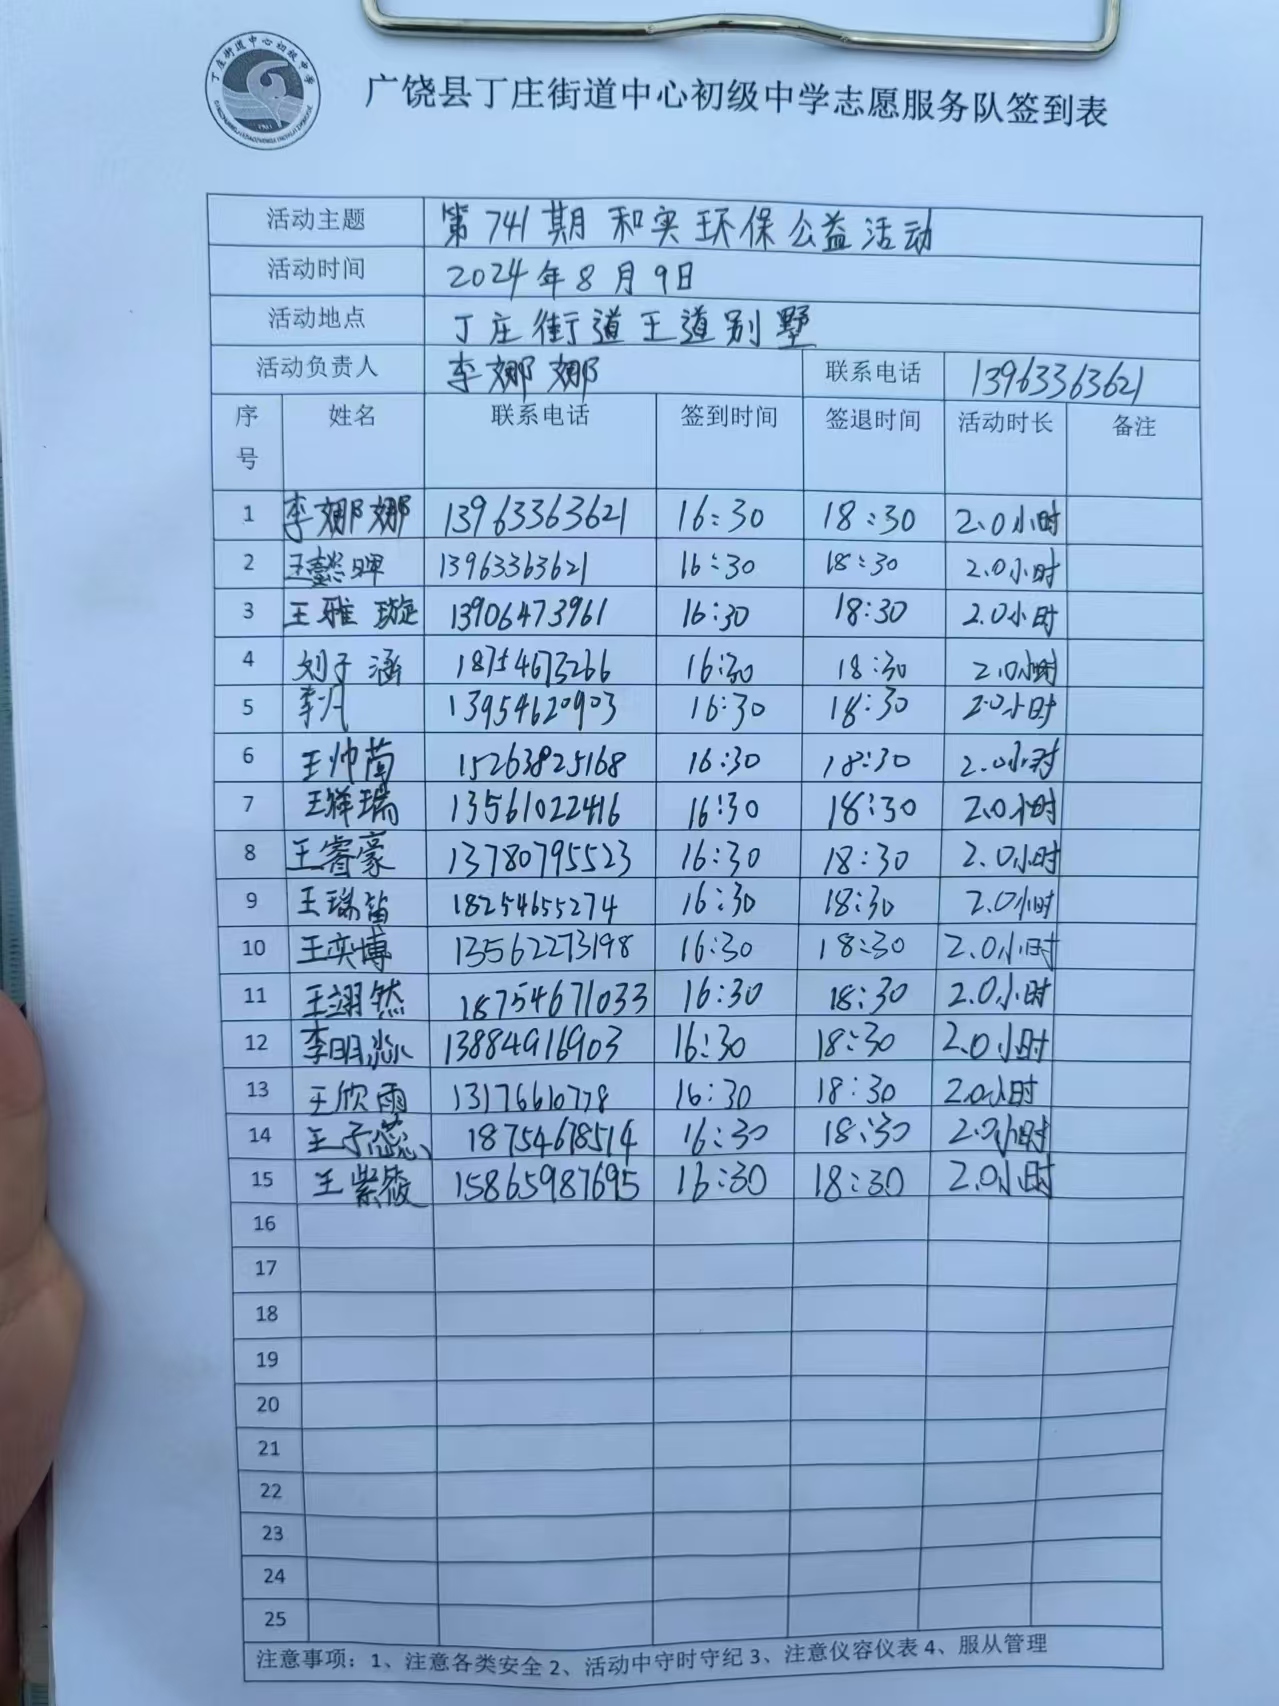 丁庄街道中心初级中学
广饶县丁庄街道中心初级中学志愿服务队签到表
活动主题 第741期和实环保公益活动
活动时间 2024年8月9日
活动地点 丁庄街道王道别墅
活动负责人 李娜娜 联系电话 13963363621
序号 姓名 联系电话 签到时间 签退时间 活动时长 备注
1 李娜娜 13963363621 16:30 18:30 2.0小时
2 王懿晔 13963363621 16:30 18:30 2.0小时
3 王雅璇 13906473961 16:30 18:30 2.0小时
4 刘子涵 18754673266 16:30 18:30 2.0小时
5 李凡 13954620903 16:30 18:30 2.0小时
6 王帅茵 15263825168 16:30 18:30 2.0小时
7 王祥瑞 13561022416 16:30 18:30 2.0小时
8 王睿豪 13780795523 16:30 18:30 2.0小时
9 王瑞笛 18254655274 16:30 18:30 2.0小时
10 王奕博 13562273198 16:30 18:30 2.0小时
11 王翊然 18754671033 16:30 18:30 2.0小时
12 李明淼 13884916903 16:30 18:30 2.0小时
13 王欣雨 13176610778 16:30 18:30 2.0小时
14 王子蕊 18754678514 16:30 18:30 2.0小时
15 王紫筱 15865987695 16:30 18:30 2.0小时
16
17
18
19
20
21
22
23
24
25
注意事项：1、注意各类安全 2、活动中守时守纪 3、注意仪容仪表 4、服从管理